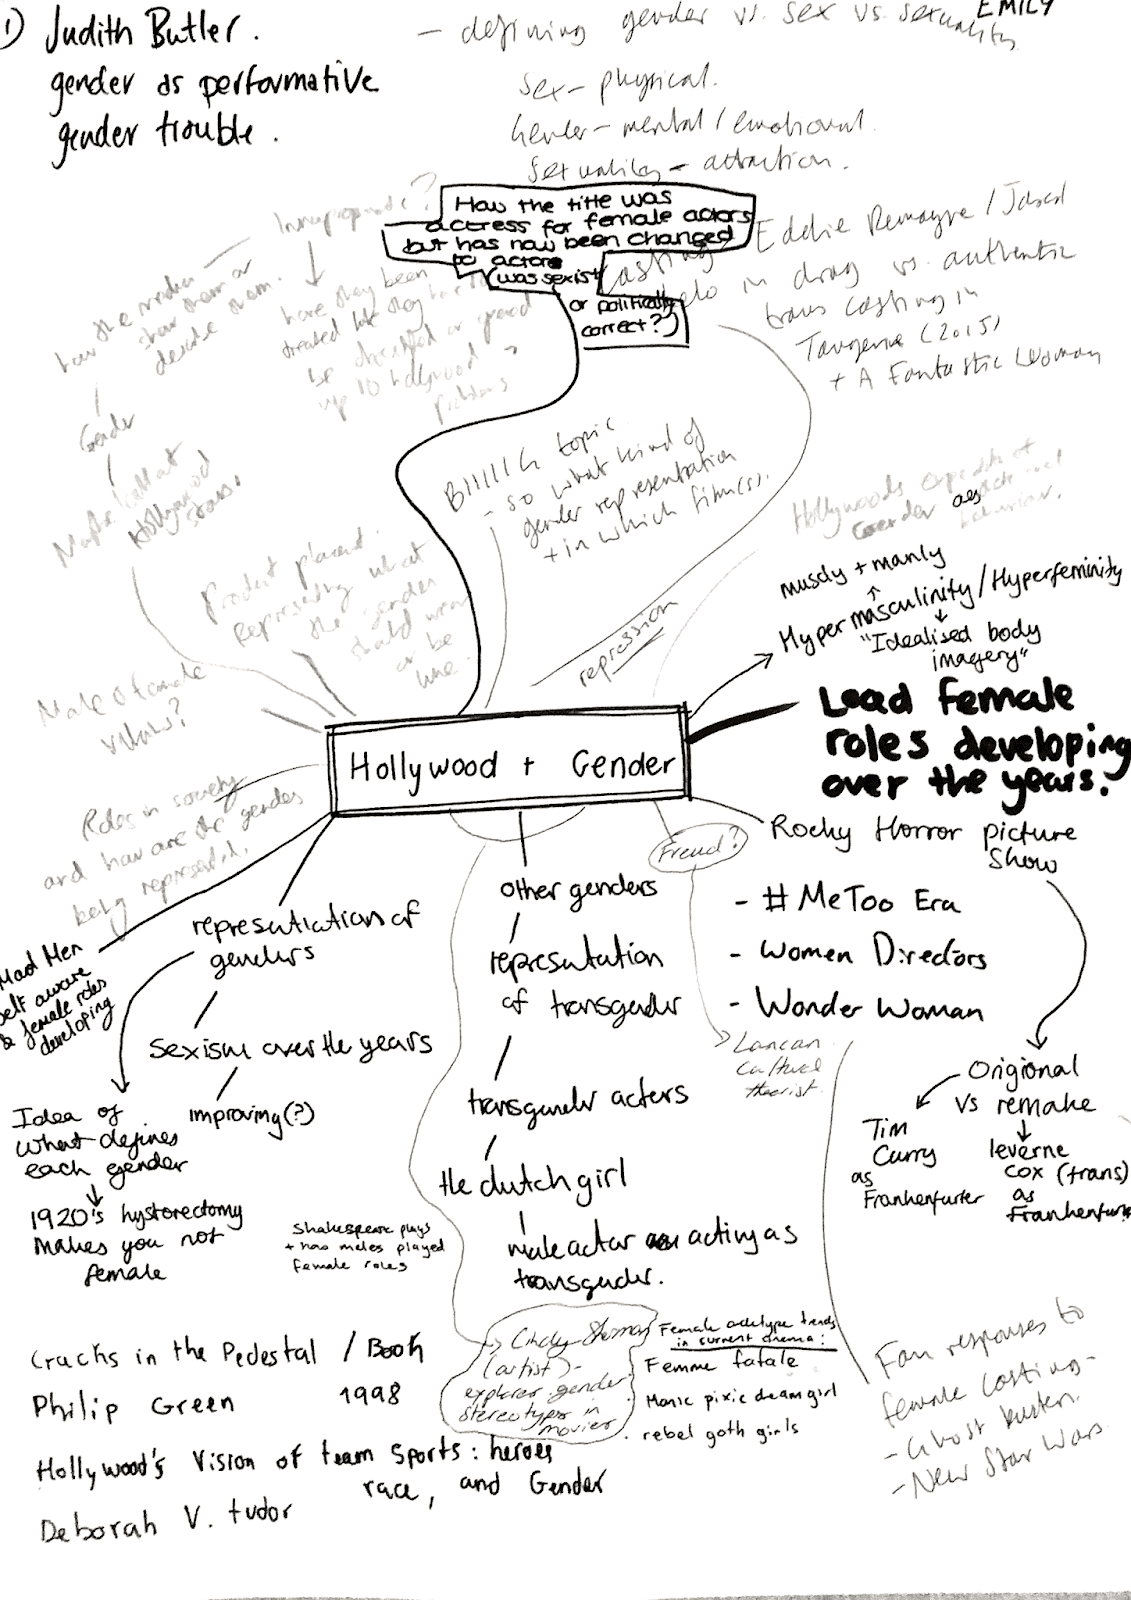 1) Judith Butler.
gender as performative
gender trouble.
EMILY
- defining gender vs. sex vs. sexuality
sex - physical.
Gender - mental / emotional.
sexuality - attraction.
Innapropriate?
↓
have they been
treated like they
be
up to hollywood
problems
how the media
show them or
decide them.
Gender
Maybe look at
Hollywood
stars.
How the title was
actress for female actors
but has now been changed
to actors
(was sexist
or politically
correct?)
Casting Eddie Remayne / Jared
Leto in drag vs. authentic
trans casting in
Tangerine (2015)
+ A Fantastic Woman
BIIIIIG topic
- so what kind of
gender representation
+ in which film(s).
Hollywoods
Gender
behaviour.
Product placement.
Representing what
the gender
should wear
or be
like.
repression
muscly + manly
↑
Hypermasculinity / Hyperfeminity
↓
"Idealised body
imagery"
Male & female
villains?
Hollywood + Gender
Lead female
roles developing
over the years.
Roles in society
and how are the genders
being represented.
Freud?
Lancan
cultural
theorist.
Rocky Horror picture
Show
Origional
vs remake
Tim
Curry
as
Frankenfurter
leverne
cox (trans)
as
Frankenfurter
- # MeToo Era
- Women Directors
- Wonder Woman
Mad Men
self aware
& female roles
developing
representation of
genders
sexism over the years
improving(?)
Idea of
what defines
each gender
↓
1920's hystorectomy
makes you not
female
other genders
representation
of transgender
transgender actors
the dutch girl
male actor acting as
transgender.
Shakespeare plays
+ how males played
female roles
Cindy Sherman
(artist) -
explores gender
stereotypes in
movies
Female archetype trends
in current cinema:
Femme fatale
Manic pixie dream girl
rebel goth girls
Fan responses to
female casting -
- Ghost busters.
- New Star Wars
Cracks in the Pedestal / Book
Philip Green 1998
Hollywood's Vision of team sports: heroes
race, and Gender
Deborah V. tudor